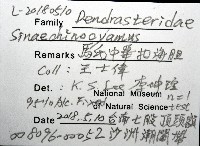 L-20180510
Family Dendrasteridae
Sinaechinocyamus
Remarks 馬氏中華扣海膽
Coll: 王士偉
Det.: K. S. Lee 李坤瑄
National Museum n=1
of Natural Science test
Date 2018.5.10 台南七股頂頭額
008096-00052 沙洲潮間帶